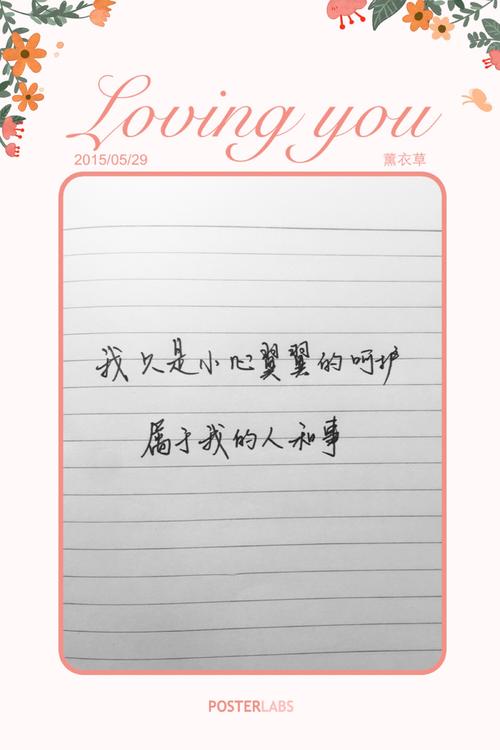 Loving you
2015/05/29 薰衣草
我只是小心翼翼的呵护
属于我的人和事
POSTERLABS